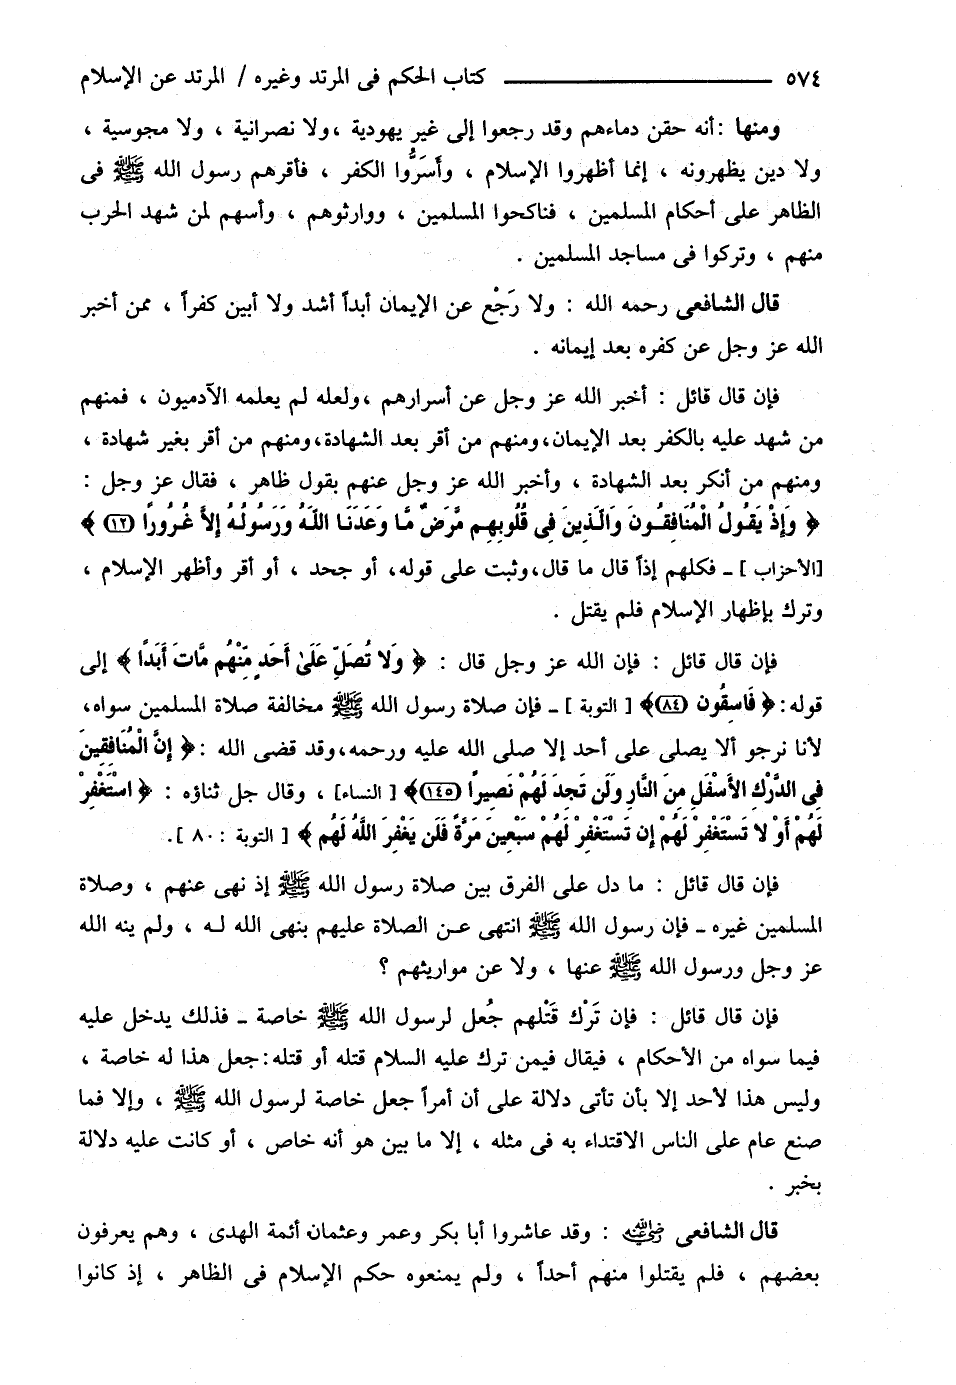 ٥٧٤ ـــــــــــــــــ كتاب الحكم فى المرتد وغيره / المرتد عن الإسلام
ومنها : أنه حقن دماءهم وقد رجعوا إلى غير يهودية ، ولا نصرانية ، ولا مجوسية ،
ولا دين يظهرونه ، إنما أظهروا الإسلام ، وأَسَرُّوا الكفر ، فأقرهم رسول الله ﷺ فى
الظاهر على أحكام المسلمين ، فناكحوا المسلمين ، ووارثوهم ، وأسهم لمن شهد الحرب
منهم ، وتركوا فى مساجد المسلمين .
قال الشافعى رحمه الله : ولا رَجْع عن الإيمان أبداً أشد ولا أبين كفراً ، ممن أخبر
الله عز وجل عن كفره بعد إيمانه .
فإن قال قائل : أخبر الله عز وجل عن أسرارهم ، ولعله لم يعلمه الآدميون ، فمنهم
من شهد عليه بالكفر بعد الإيمان، ومنهم من أقر بعد الشهادة، ومنهم من أقر بغير شهادة ،
ومنهم من أنكر بعد الشهادة ، وأخبر الله عز وجل عنهم بقول ظاهر ، فقال عز وجل :
﴿ وَإِذْ يَقُولُ الْمُنَافِقُونَ وَالَّذِينَ فِي قُلُوبِهِم مَّرَضٌ مَّا وَعَدَنَا اللَّهُ وَرَسُولُهُ إِلاَّ غُرُورًا (١٢) ﴾
[الأحزاب ] ـ فكلهم إذاً قال ما قال، وثبت على قوله، أو جحد ، أو أقر وأظهر الإسلام ،
وترك بإظهار الإسلام فلم يقتل .
فإن قال قائل : فإن الله عز وجل قال : ﴿ وَلا تُصَلِّ عَلَىٰ أَحَدٍ مِّنْهُم مَّاتَ أَبَدًا ﴾ إلى
قوله: ﴿ فَاسِقُون (٨٤)﴾ [ التوبة ] ـ فإن صلاة رسول الله ﷺ مخالفة صلاة المسلمين سواه،
لأنا نرجو ألا يصلى على أحد إلا صلى الله عليه ورحمه، وقد قضى الله : ﴿ إِنَّ الْمُنَافِقِينَ
فِي الدَّرْكِ الأَسْفَلِ مِنَ النَّارِ وَلَن تَجِدَ لَهُمْ نَصِيرًا (١٤٥)﴾ [ النساء] ، وقال جل ثناؤه : ﴿ اسْتَغْفِرْ
لَهُمْ أَوْ لا تَسْتَغْفِرْ لَهُمْ إِن تَسْتَغْفِرْ لَهُمْ سَبْعِينَ مَرَّةً فَلَن يَغْفِرَ اللَّهُ لَهُم ﴾ [ التوبة : ٨٠ ].
فإن قال قائل : ما دل على الفرق بين صلاة رسول الله ﷺ إذ نهى عنهم ، وصلاة
المسلمين غيره ـ فإن رسول الله ﷺ انتهى عن الصلاة عليهم بنهى الله له ، ولم ينه الله
عز وجل ورسول الله ﷺ عنها ، ولا عن مواريثهم ؟
فإن قال قائل : فإن تَرْك قَتْلهم جُعل لرسول الله ﷺ خاصة ـ فذلك يدخل عليه
فيما سواه من الأحكام ، فيقال فيمن ترك عليه السلام قتله أو قتله : جعل هذا له خاصة ،
وليس هذا لأحد إلا بأن تأتى دلالة على أن أمراً جعل خاصة لرسول الله ﷺ ، وإلا فما
صنع عام على الناس الاقتداء به فى مثله ، إلا ما بين هو أنه خاص ، أو كانت عليه دلالة
بخبر .
قال الشافعى رضي الله عنه : وقد عاشروا أبا بكر وعمر وعثمان أئمة الهدى ، وهم يعرفون
بعضهم ، فلم يقتلوا منهم أحداً ، ولم يمنعوه حكم الإسلام فى الظاهر ، إذ كانوا